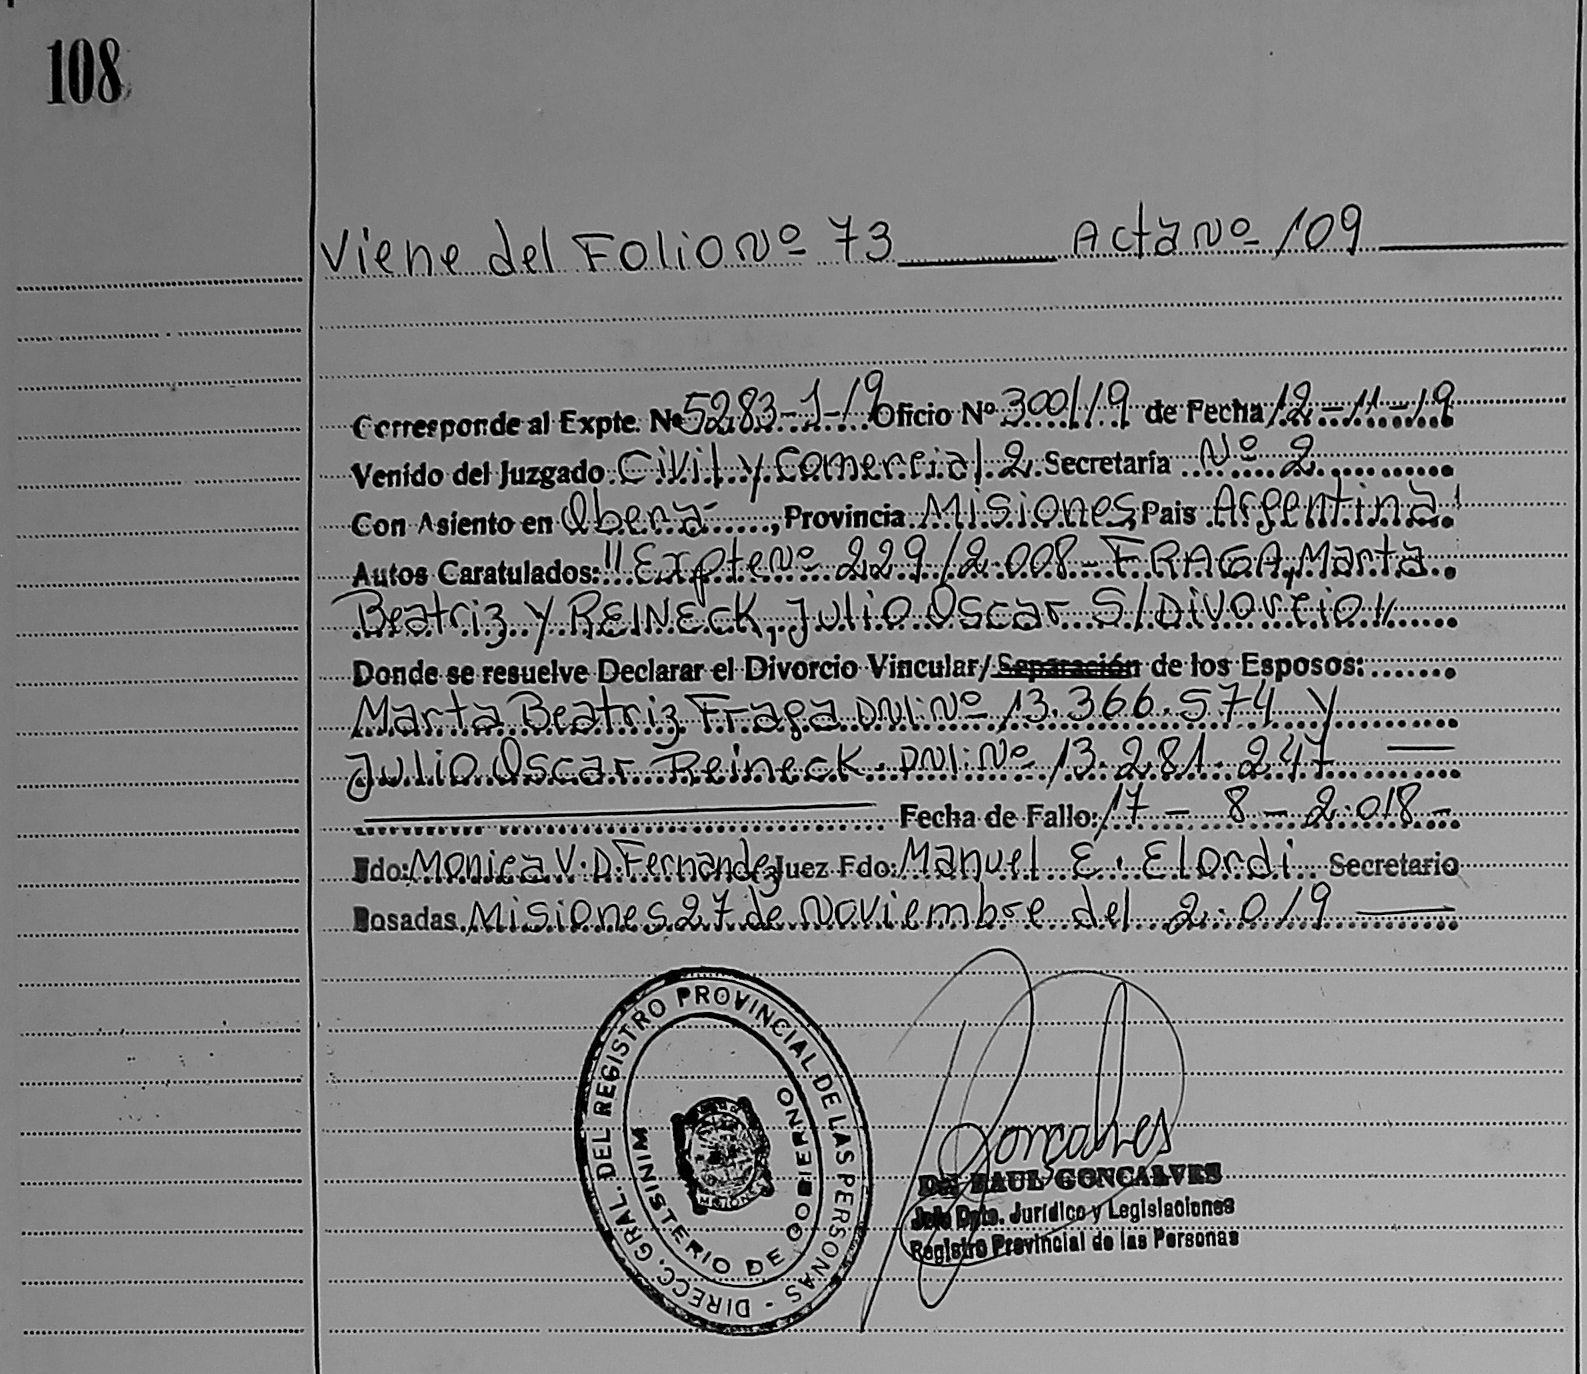 108
Viene del Folio Nº 73 Acta Nº 109
Corresponde al Expte. Nº 5283-1-19 Oficio Nº 300/19 de Fecha 12-11-19
Venido del Juzgado Civil y Comercial 2 Secretaría Nº 2
Con Asiento en Oberá, Provincia Misiones Pais Argentina
Autos Caratulados: "Expte Nº 229/2.008- FRAGA, Marta
Beatriz y REINECK, Julio Oscar S/Divorcio"
Donde se resuelve Declarar el Divorcio Vincular/Separación de los Esposos:
Marta Beatriz Fraga DNI: Nº 13.366.574 y
Julio Oscar Reineck. DNI: Nº 13.281.247
Fecha de Fallo: 17 - 8 - 2.018-
Fdo: Monica V. D. Fernandez Juez Fdo: Manuel E. Elordi. Secretario
Posadas, Misiones 27 de Noviembre del 2.019
DIRECC. GRAL. DEL REGISTRO PROVINCIAL DE LAS PERSONAS -
MINISTERIO DE GOBIERNO
MISIONES
Goncalves
RAUL GONCALVES
Jefe Dpto. Jurídico y Legislaciones
Registro Provincial de las Personas